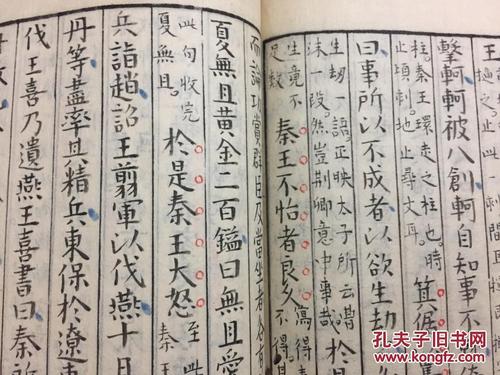 擊軻軻被八創軻自知事不
柱。秦王環走之柱也。時
止頃刺。地止尋丈耳。
箕倨
曰事所以不成者以欲生劫
生劫一語正映太子所云得
沫一段。然豈荊卿意中事哉
於
生竟不
足數
秦王不怡者良久
寫得
不得
而論功賞群臣及當坐者各有
夏無且黃金二百鎰曰無且愛
此句收完
夏無且。
於是秦王大怒
至此
秦
兵詣趙詔王翦軍以伐燕十月
丹等盡率其精兵東保於遼
伐王喜乃遺燕王喜書曰秦
孔夫子旧书网
www.kongfz.com